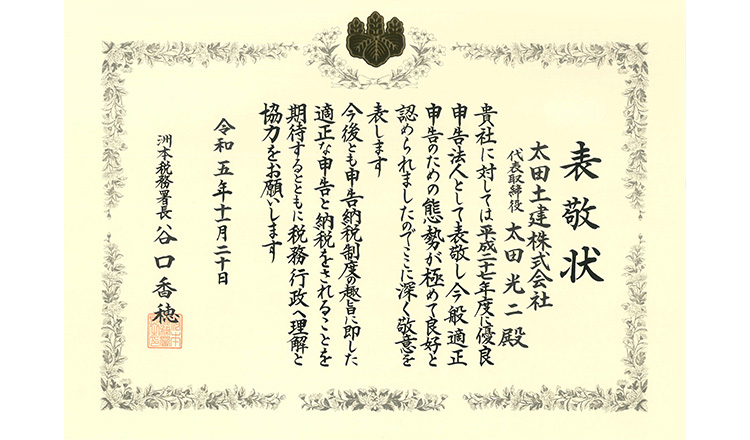 表敬状
太田土建株式会社
代表取締役 太田光二殿
貴社に対しては平成二十七年度に優良
申告法人として表敬し今般適正
申告のための態勢が極めて良好と
認められましたのでここに深く敬意を
表します
今後とも申告納税制度の趣旨に即した
適正な申告と納税をされることを
期待するとともに税務行政へ理解と
協力をお願いします
令和五年十一月二十日
洲本税務署長 谷口香穂